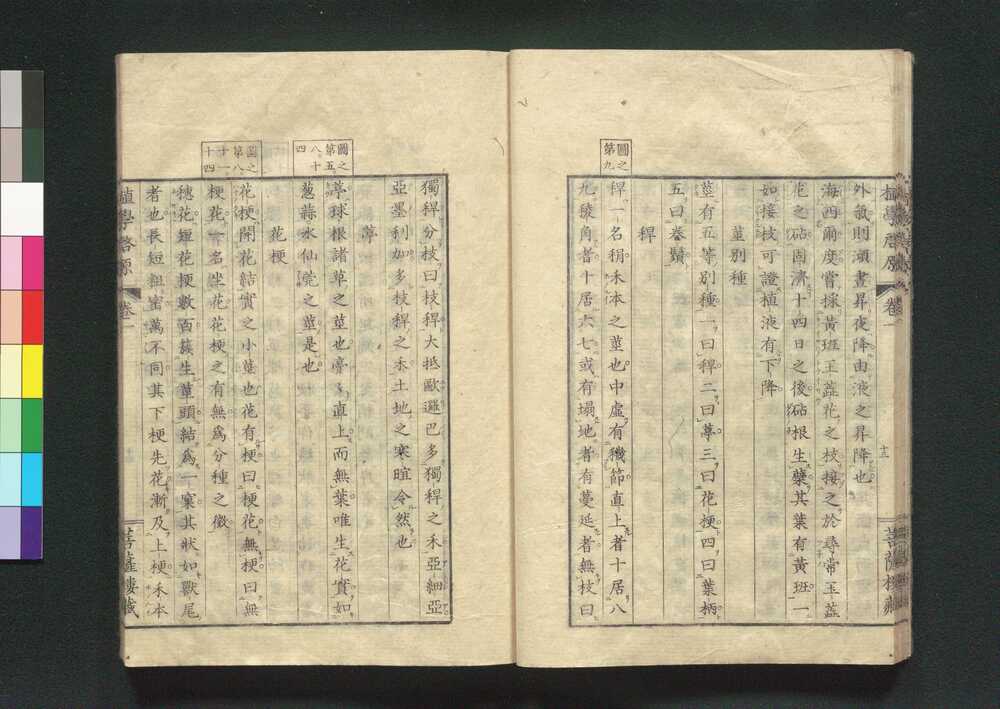 植學啓原 卷一
菩薩樓藏
外氣則瀕晝昇夜降由液之昇降也
海西爾度嘗採黃斑玉蕋花之枝接之於尋常玉蕋
花之砧國濟十四日之後砧根生蘖其葉有黃斑一
如接枝可證植液有下降
莖別種
莖有五等別種一曰稈二曰葶三曰花梗四曰葉柄
五曰卷鬚
稈
圖之
第九
稈一名稍禾本之莖也中虛有穖節直上者十居八
九稜角者十居六七或有塌地者有蔓延者無枝曰
獨稈分枝曰枝稈大抵歐邏巴多獨稈之禾亞細亞
亞墨利加多枝稈之禾土地之寒暄令然也
葶
圖之
第五
八十
四
葶球根諸草之莖也亭亭直上而無葉唯生花實如
葱蒜水仙菀之莖是也
花梗
圖之
第八
十一
十四
花梗開花結實之小莖也花有梗曰梗花無梗曰無
梗花一名坐花花梗之有無爲分種之徵
穗花短花梗數百簇生莖頭結爲一窠其狀如獸尾
者也長短粗蜜萬不同其下梗先花漸及上梗禾本
植學啓原 卷一
菩薩樓藏